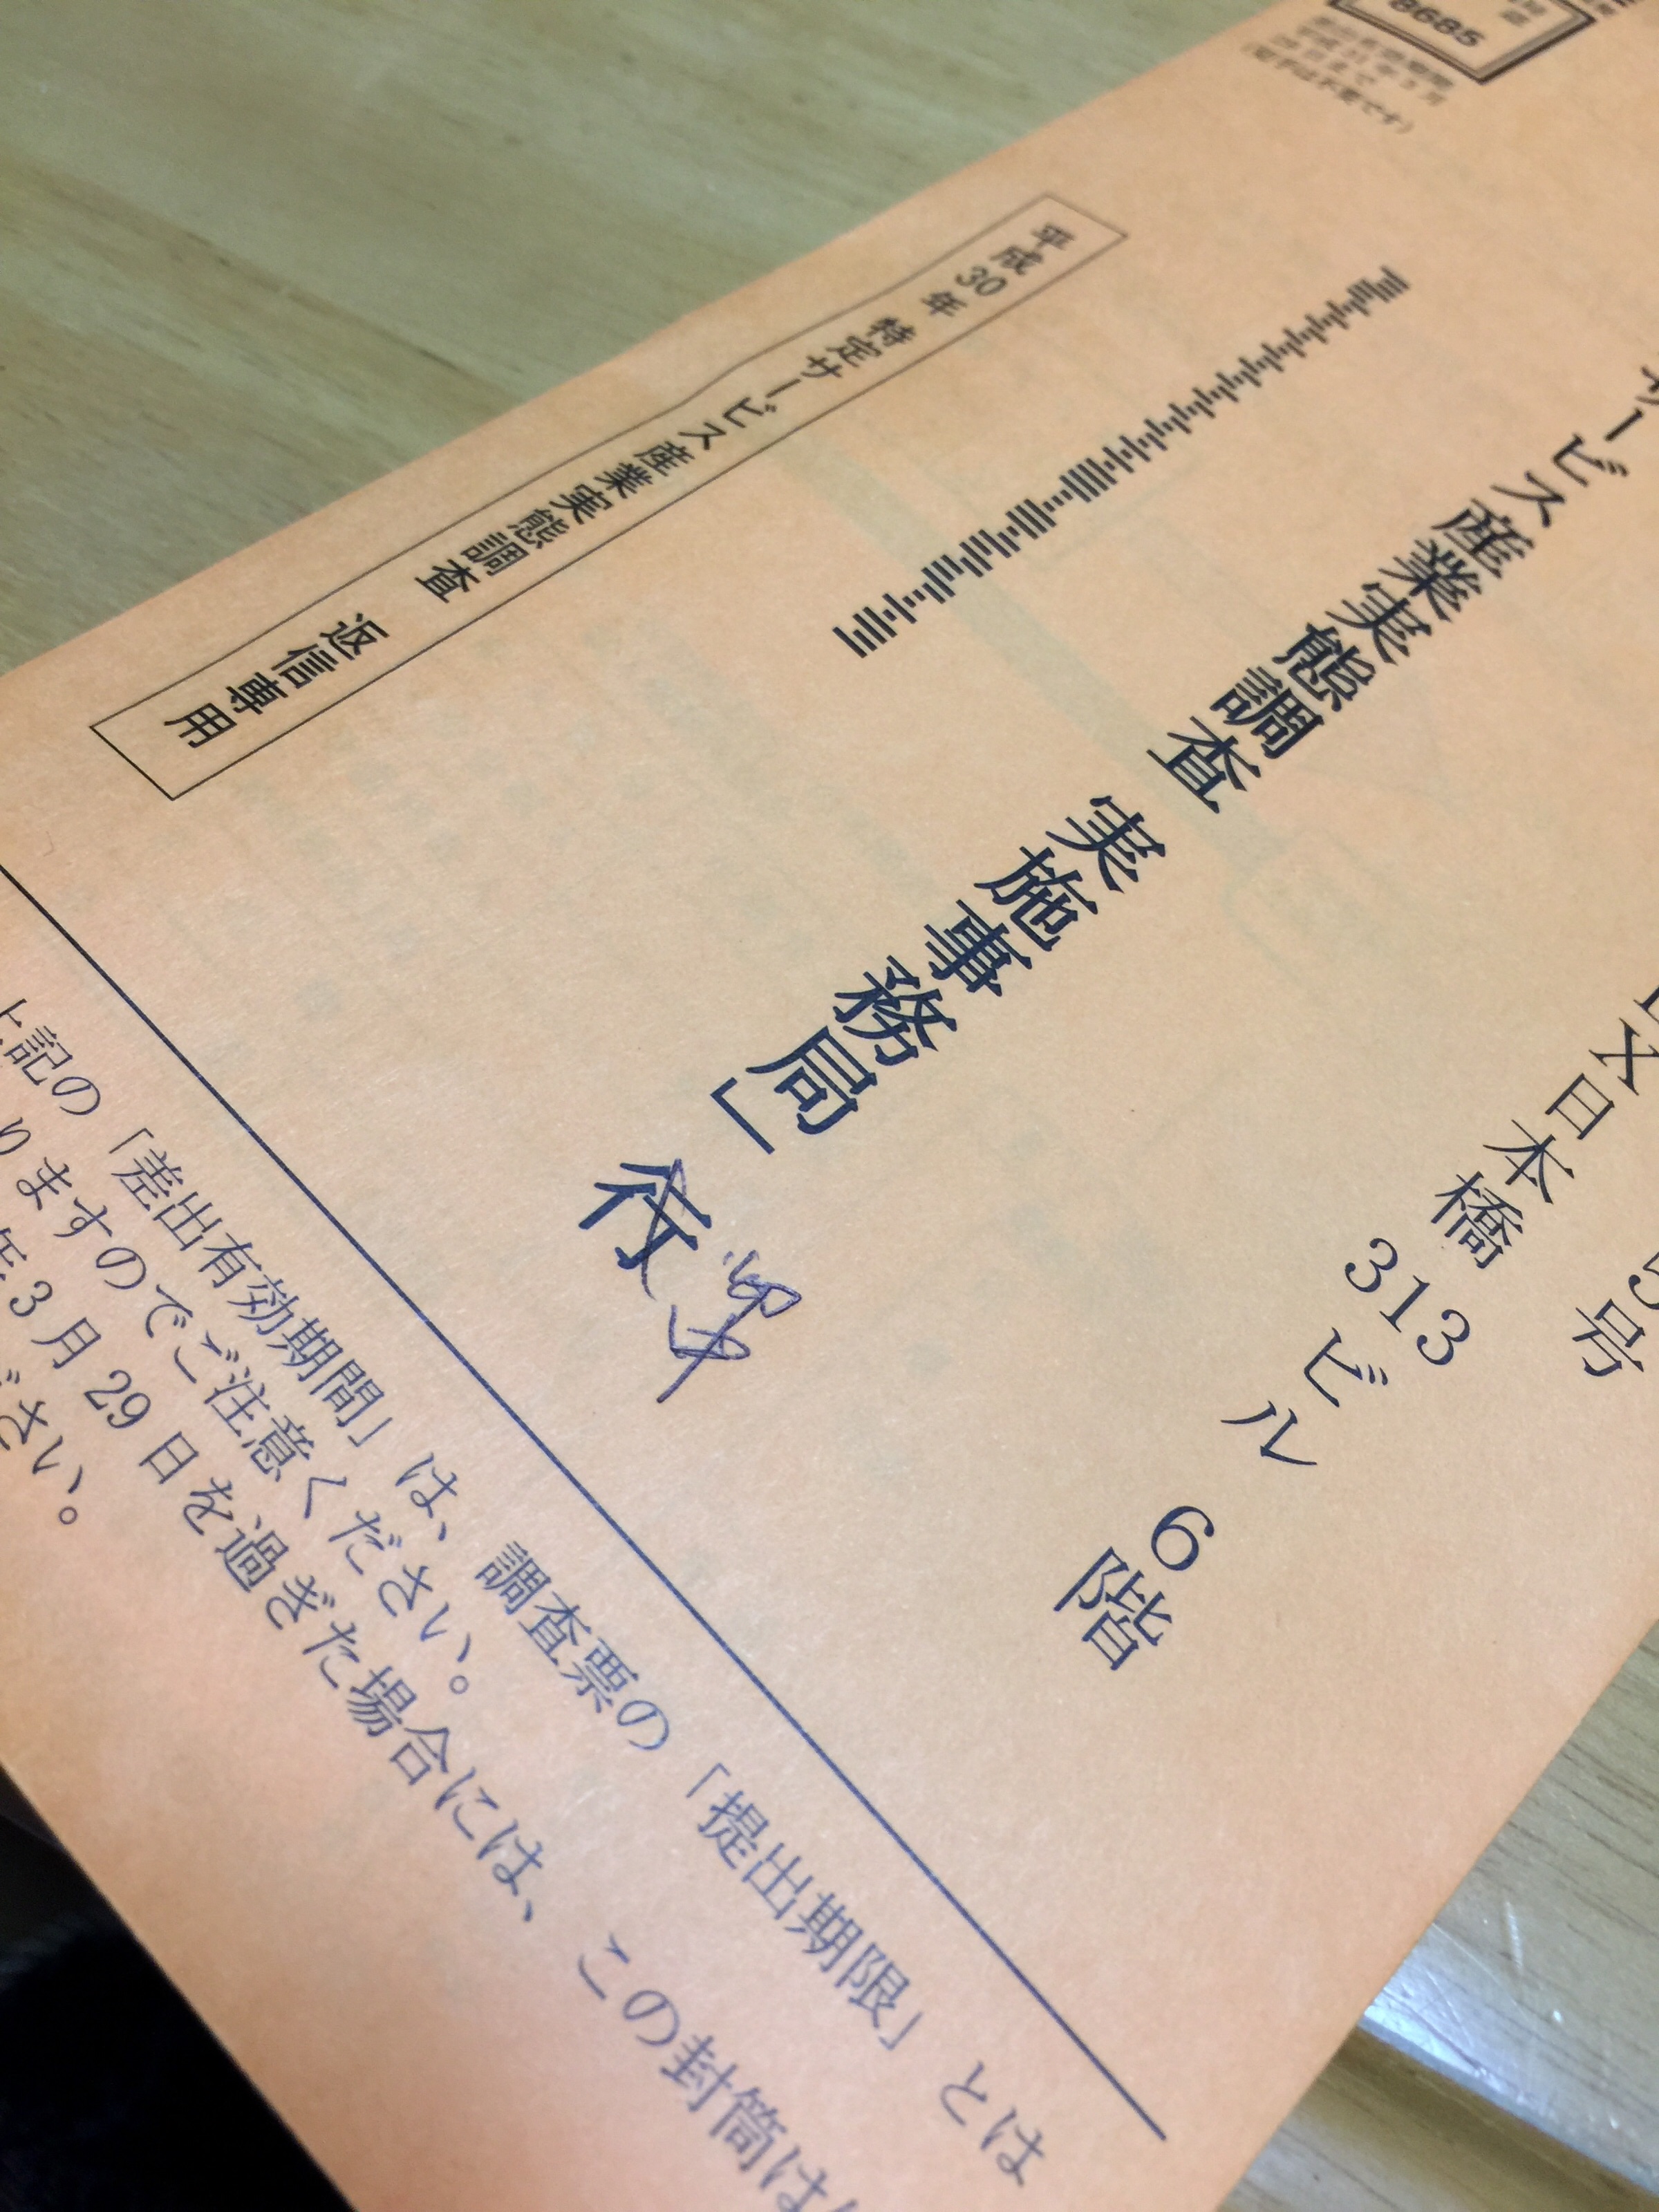 8685
(切手は不要です)
5号
日本橋 313 ビル 6階
サービス産業実態調査 実施事務局」 行
御中
平成30年 特定サービス産業実態調査 返信専用
上記の「差出有効期間」は、調査票の「提出期限」とは
りますのでご注意ください。
年3月29日を過ぎた場合には、この封筒は
ださい。